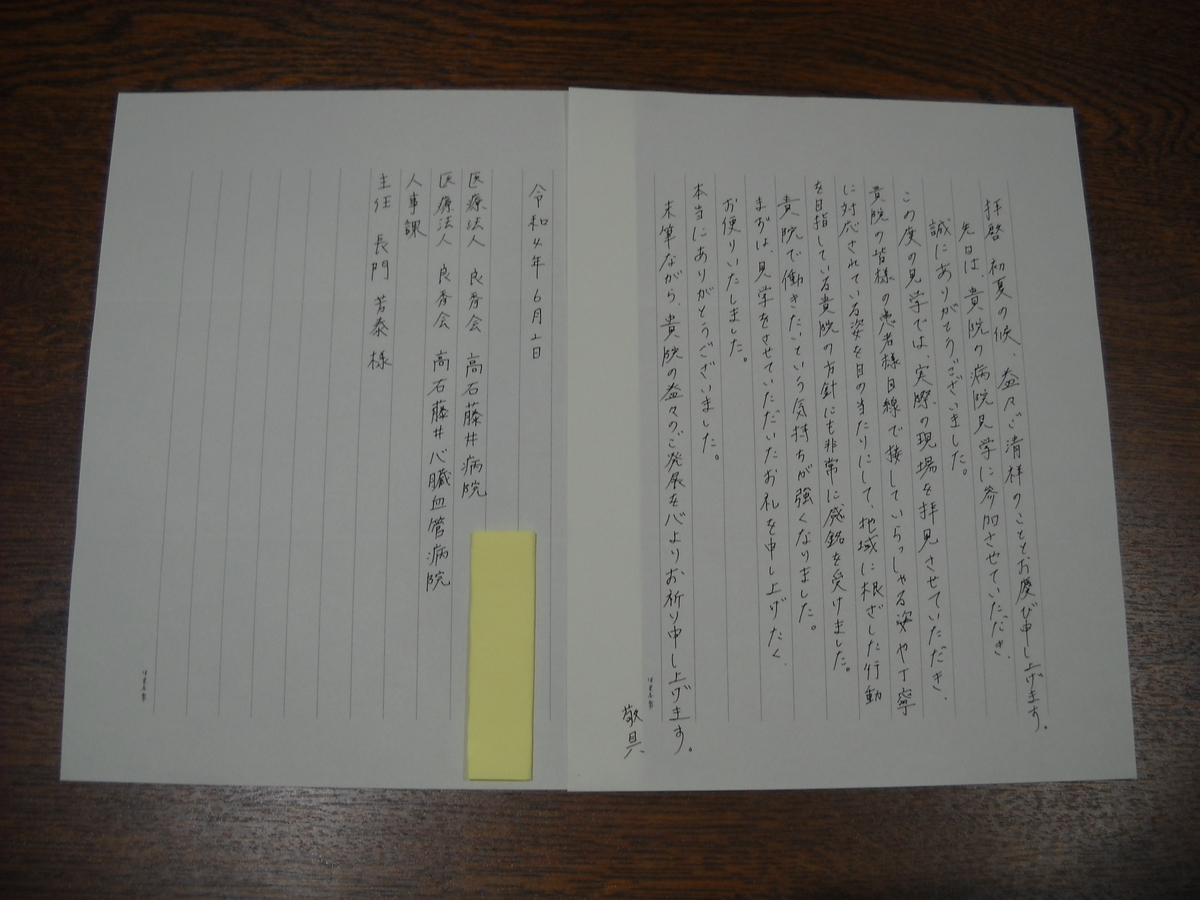 拝啓 初夏の候、益々ご清祥のこととお慶び申し上げます。
先日は、貴院の病院見学に参加させていただき、
誠にありがとうございました。
この度の見学では、実際の現場を拝見させていただき、
貴院の皆様の患者様目線で接していらっしゃる姿や丁寧
に対応されている姿を目の当たりにして、地域に根ざした行動
を目指している貴院の方針にも非常に感銘を受けました。
貴院で働きたいという気持ちが強くなりました。
まずは、見学をさせていただいたお礼を申し上げたく、
お便りいたしました。
本当にありがとうございました。
末筆ながら、貴院の益々のご発展を心よりお祈り申し上げます。
敬具
令和4年6月2日
医療法人 良秀会 高石藤井病院
医療法人 良秀会 高石藤井心臓血管病院
人事課
主任 長門 芳泰 様